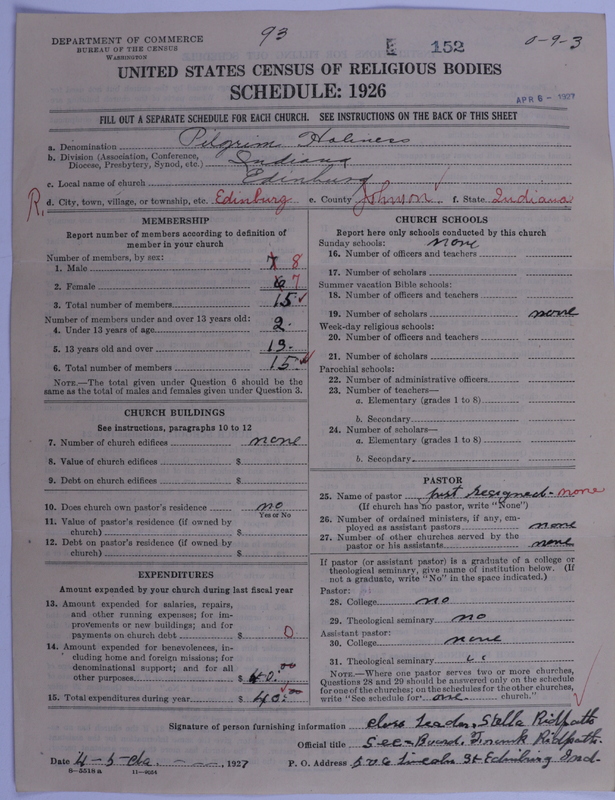 93
E 152
0-9-3
DEPARTMENT OF COMMERCE
BUREAU OF THE CENSUS
WASHINGTON
UNITED STATES CENSUS OF RELIGIOUS BODIES
SCHEDULE: 1926
APR 6 - 1927
FILL OUT A SEPARATE SCHEDULE FOR EACH CHURCH. SEE INSTRUCTIONS ON THE BACK OF THIS SHEET
a. Denomination Pilgrim Holiness
b. Division (Association, Conference, Diocese, Presbytery, Synod, etc.) Indiana
c. Local name of church Edinburg
R. d. City, town, village, or township, etc. Edinburg e. County Johnson f. State Indiana
MEMBERSHIP
Report number of members according to definition of
member in your church
Number of members, by sex:
1. Male 7 8
2. Female 7
3. Total number of members 15
Number of members under and over 13 years old:
4. Under 13 years of age 2.
5. 13 years old and over 13.
6. Total number of members 15.
NOTE.—The total given under Question 6 should be the
same as the total of males and females given under Question 3.
CHURCH BUILDINGS
See instructions, paragraphs 10 to 12
7. Number of church edifices none
8. Value of church edifices $
9. Debt on church edifices $
10. Does church own pastor's residence no
Yes or No
11. Value of pastor's residence (if owned by
church) $
12. Debt on pastor's residence (if owned by
church) $
EXPENDITURES
Amount expended by your church during last fiscal year
13. Amount expended for salaries, repairs,
and other running expenses; for im-
provements or new buildings; and for
payments on church debt $ 0
14. Amount expended for benevolences, in-
cluding home and foreign missions; for
denominational support; and for all
other purposes $ 40.00
15. Total expenditures during year $ 40.00
CHURCH SCHOOLS
Report here only schools conducted by this church
Sunday schools: none
16. Number of officers and teachers
17. Number of scholars
Summer vacation Bible schools:
18. Number of officers and teachers
19. Number of scholars none
Week-day religious schools:
20. Number of officers and teachers
21. Number of scholars
Parochial schools:
22. Number of administrative officers
23. Number of teachers—
a. Elementary (grades 1 to 8)
b. Secondary
24. Number of scholars—
a. Elementary (grades 1 to 8)
b. Secondary
PASTOR
25. Name of pastor just resigned - none
(If church has no pastor, write "None")
26. Number of ordained ministers, if any, em-
ployed as assistant pastors none
27. Number of other churches served by the
pastor or his assistants none
If pastor (or assistant pastor) is a graduate of a college or
theological seminary, give name of institution below. (If
not a graduate, write "No" in the space indicated.)
Pastor:
28. College no
29. Theological seminary no
Assistant pastor:
30. College none
31. Theological seminary "
NOTE.—Where one pastor serves two or more churches,
Questions 28 and 29 should be answered only on the schedule
for one of the churches; on the schedules for the other churches,
write "See schedule for one church."
Signature of person furnishing information class Leader, Stella Ridpath
Official title Sec - Board. Frank Ridpath.
Date 4-5- , 1927 P. O. Address Lincoln St Edinburg Ind.
8-5518 a 11-9324